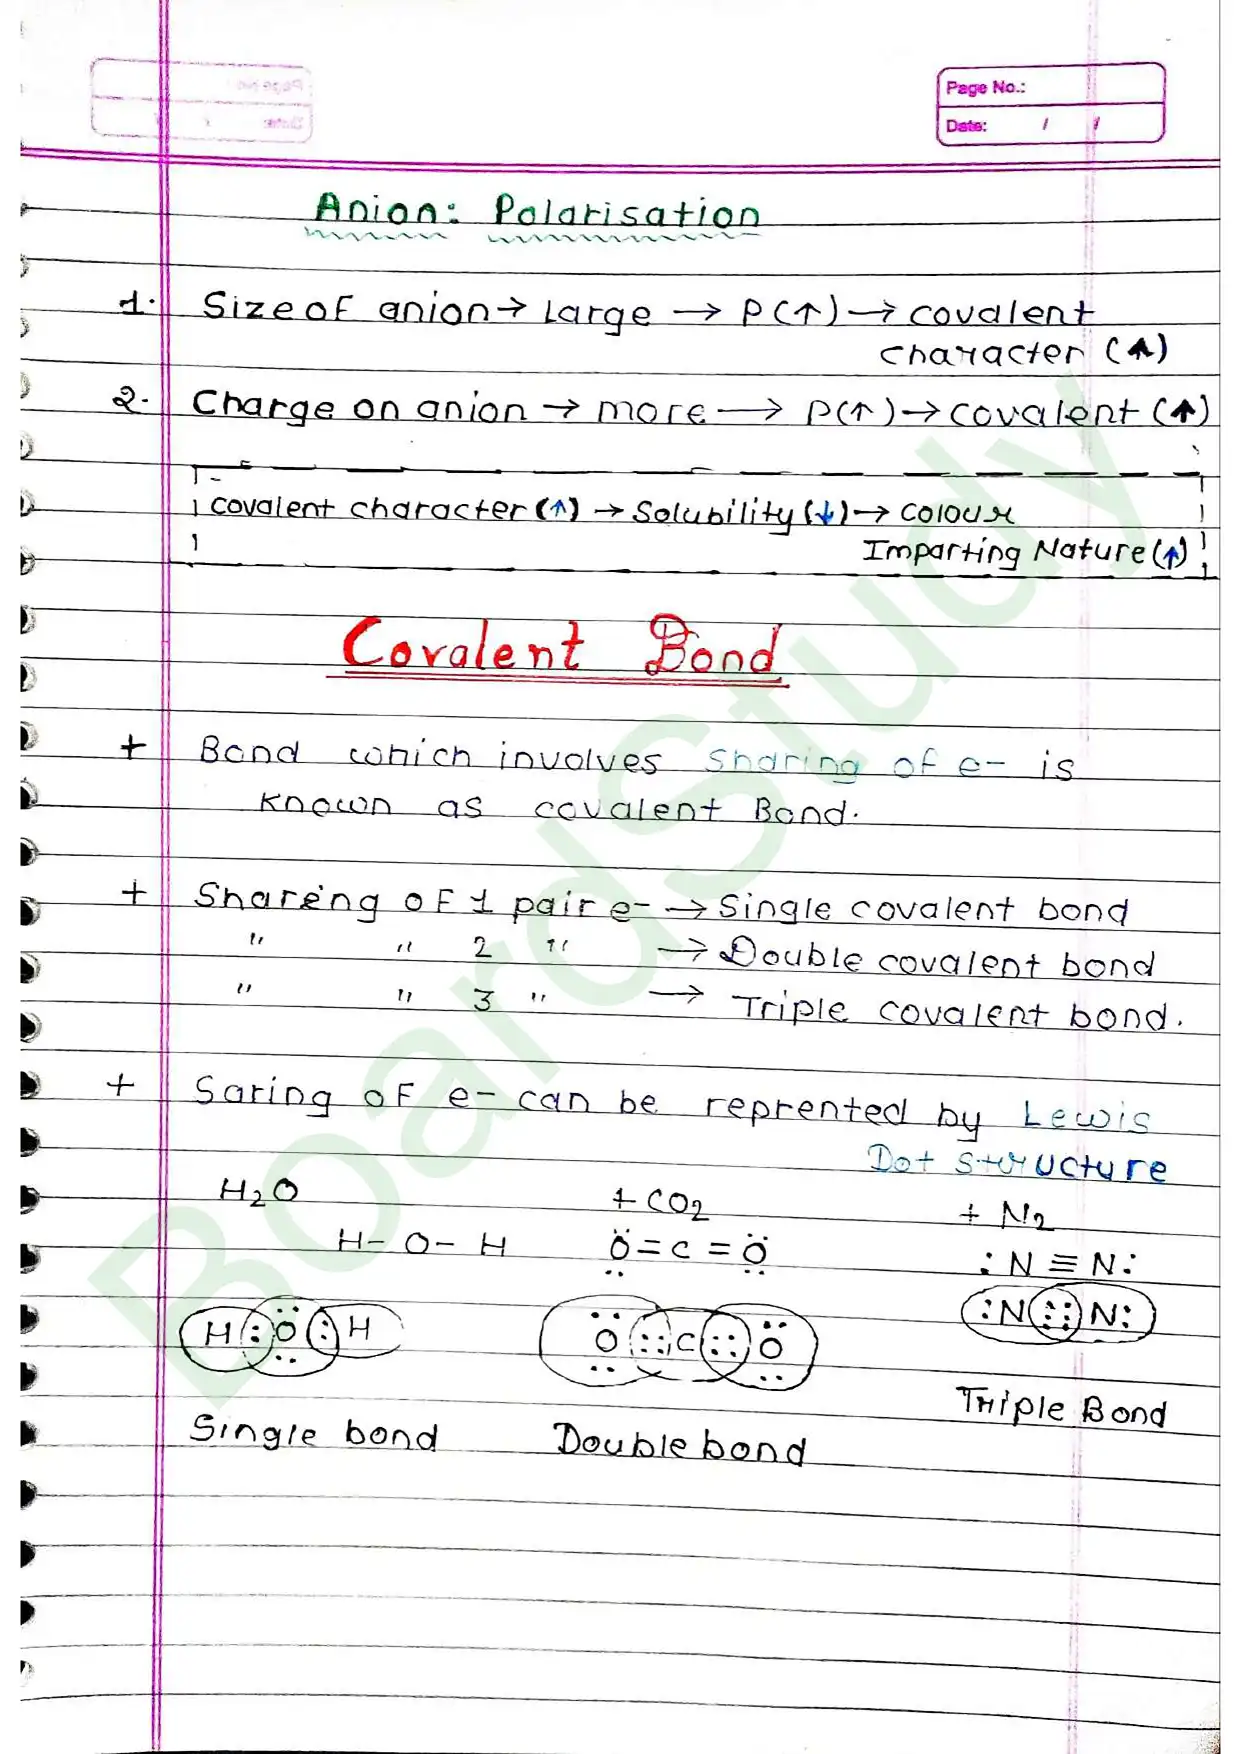 Page No.:
Date: / /
Anion: Polarisation
1. Size of anion → Large → P(↑) → covalent
character (↑)
2. Charge on anion → more → P(↑) → covalent (↑)
covalent character (↑) → Solubility (↓) → colour
Imparting Nature (↑)
Covalent Bond
+ Bond which involves Sharing of e- is
known as covalent Bond.
+ Shareing of 1 pair e- → Single covalent bond
" " 2 " → Double covalent bond
" " 3 " → Triple covalent bond.
+ Saring of e- can be reprented by Lewis
Dot structure
H2O + CO2 + N2
H- O- H Ö = C = Ö : N ≡ N :
H : O : H O :: C :: O : N ::: N :
Single bond Double bond Triple Bond
BoardStudy